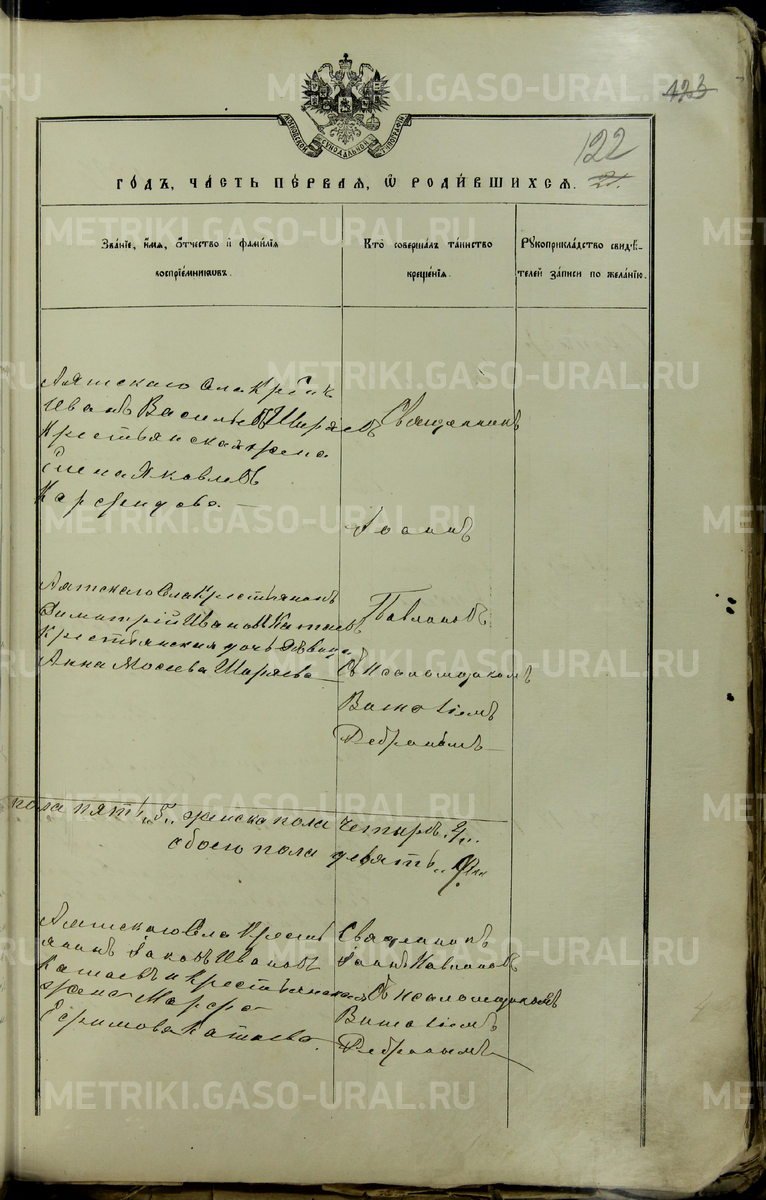 123
122
21.
МОСКОВСКОЙ СѴНОДАЛЬНОЙ ТИПОГРАФІИ
ГО́ДЪ, ЧА́СТЬ ПЕ́РВАЯ, Ѡ҆ РОДИ́ВШИХСЯ.
Зва́нїе, и҆́мя, ѻ҆́тчество и҆ фами́лїя
воспрїе́мникѡвъ.
Кто̀ соверша́лъ та́инство
креще́нїя.
Рꙋкоприкла́дство свидѣ́-
телей за́писи по жела́нїю.
Аятскаго Села Крестьянинъ
Иванъ Васильевъ Ширяевъ
Крестьянская жена
Елена Яковлева
Карфидова.
Священникъ
Іоаннъ
Аятскаго Села Крестьянинъ
Димитрій Ивановъ Катаевъ
Крестьянская дочь Дѣвица
Анна Мосеева Ширяева
Павлиновъ
Съ Псаломщикомъ
пола пять „5„ женска пола четыре „4„
обоего пола девять „9„
Аятскаго Села Кресть
янинъ Іаковъ Ивановъ
Катаевъ и Крестьянская
жена Марфа
Ефимова Катаева.
Священникъ
Іоаннъ Павлиновъ
Съ Псаломщикомъ
METRIKI.GASO-URAL.RU